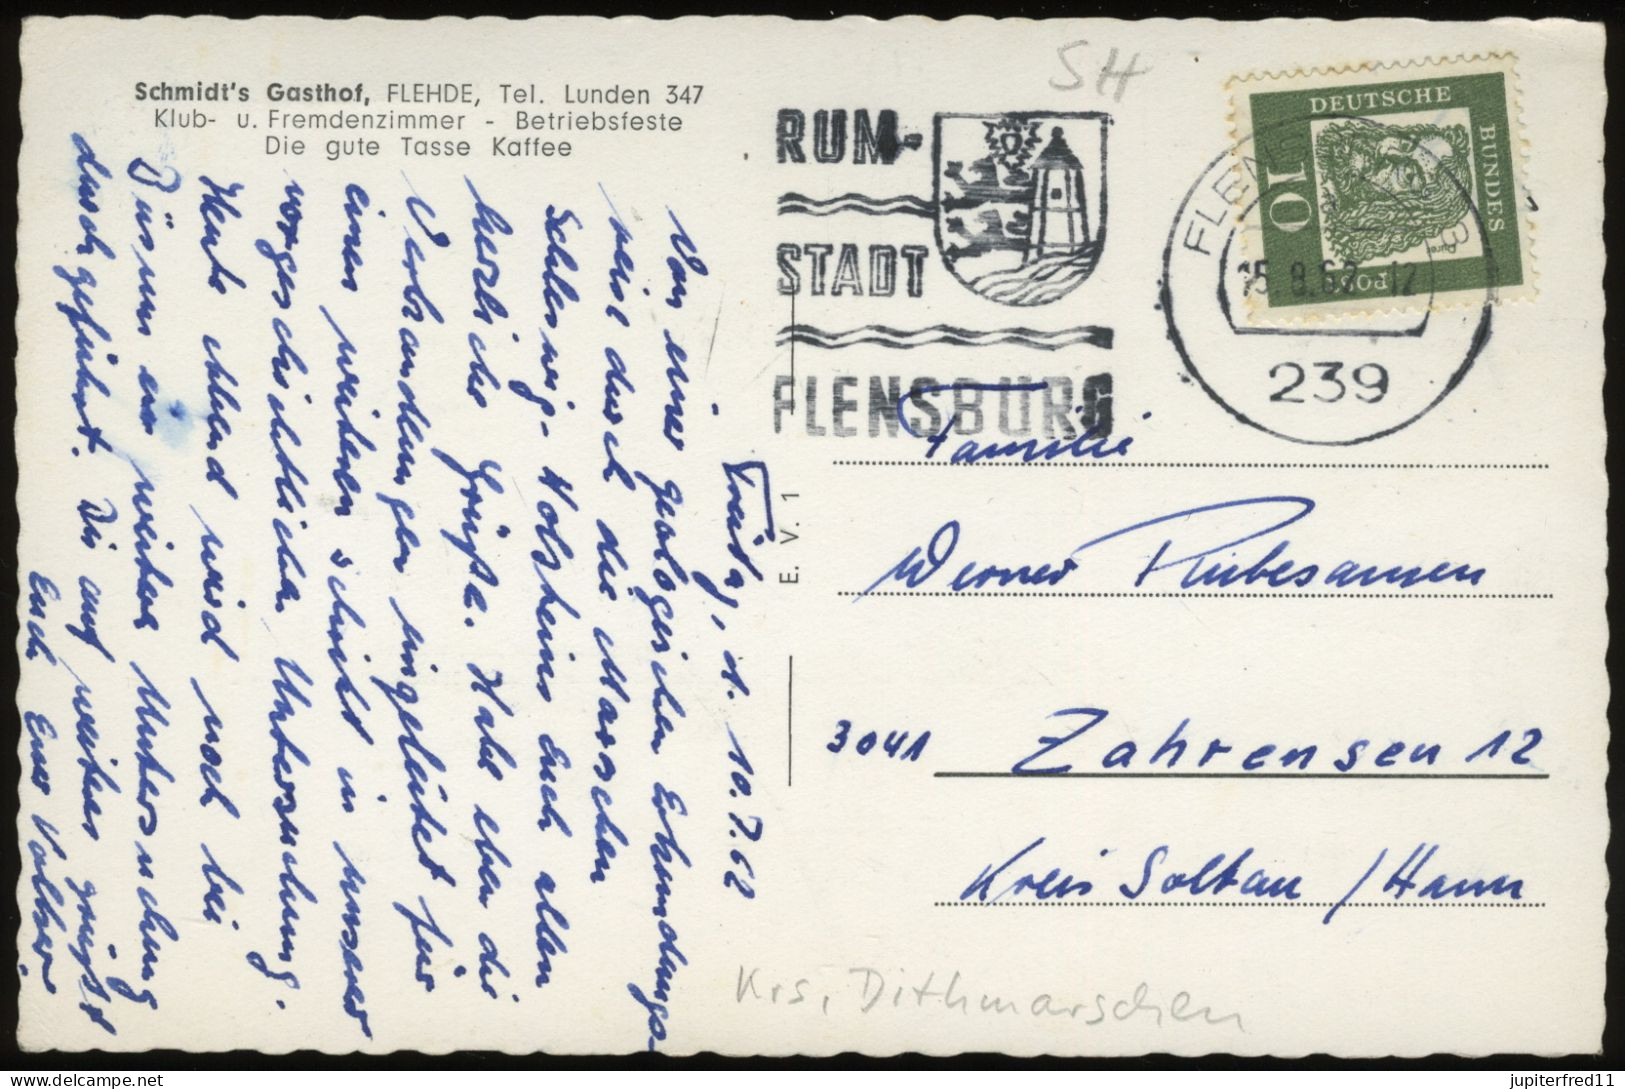 Schmidt's Gasthof, FLEHDE, Tel. Lunden 347
Klub- u. Fremdenzimmer - Betriebsfeste
Die gute Tasse Kaffee
SH
RUM-
STADT
FLENSBURG
DEUTSCHE
BUNDES
POST
10
FLENSBURG
15.8.62-12
239
Freitag, d. 10.7.62
Von einer geologischen Erkundungs-
reise durch die Marschen
Schleswig-Holsteins Euch allen
herzliche Grüße. Habe eben die
Verhandlungen eingeleitet für
einen weiteren Schritt in unserer
vorgeschichtlichen Untersuchung.
Heute Abend wird noch bei
Büsum ein weitere Untersuchung
durchgeführt. Bis auf weiteres grüßt
Euch Euer Volker
E. V. 1
Familie
Werner Rübesamen
3041 Zahrensen 12
Kreis Soltau / Hann
Krs. Dithmarschen
jupiterfred11